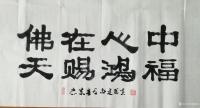 佛在心中
天赐鸿福